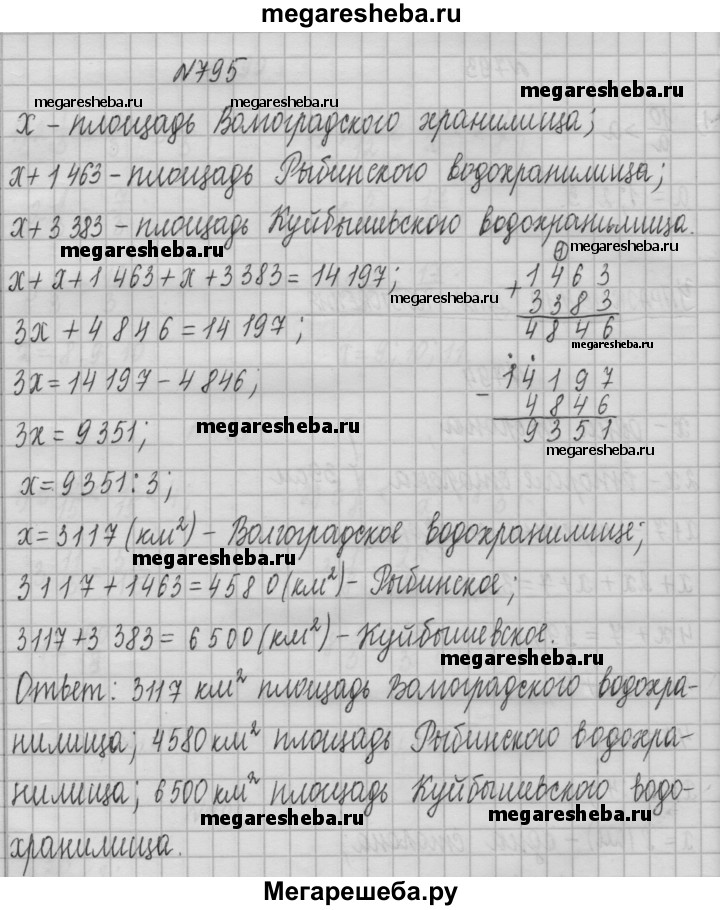 megaresheba.ru
№795
megaresheba.ru
megaresheba.ru
megaresheba.ru
x - площадь Волгоградского хранилища;
x+1 463 - площадь Рыбинского водохранилища;
x+3 383 - площадь Куйбышевского водохранилища.
megaresheba.ru
megaresheba.ru
x+x+1 463+x+3 383=14 197;
1
+ 1463
megaresheba.ru
3383
4846
3x+4 846=14 197;
megaresheba.ru
3x=14 197-4 846;
- 14197
4846
9351
3x=9 351;
megaresheba.ru
megaresheba.ru
x=9 351:3;
x=3117 (км²) - Волгоградское водохранилище;
megaresheba.ru
3117+1463=4580 (км²) - Рыбинское;
3117+3 383=6 500 (км²) - Куйбышевское.
megaresheba.ru
Ответ: 3117 км² площадь Волгоградского водохра-
нилища; 4580 км² площадь Рыбинского водохра-
нилища; 6500 км² площадь Куйбышевского водо-
megaresheba.ru
megaresheba.ru
хранилища.
Мегарешеба.ру